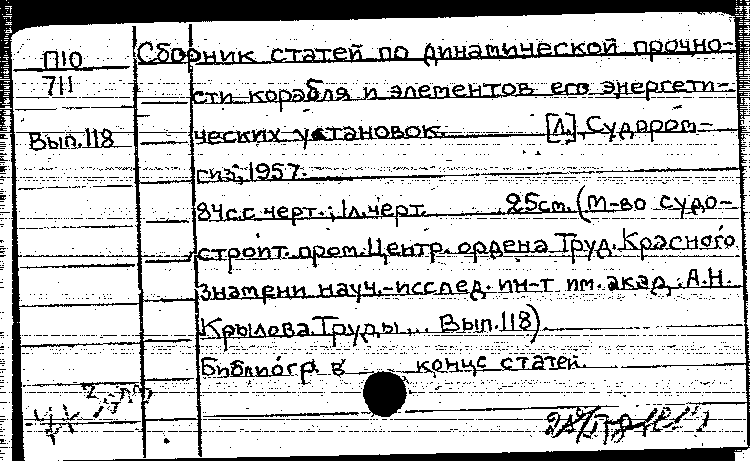 П10 Сборник статей по динамической прочно-
711 сти корабля и элементов его энергети-
Вып.118 ческих установок. [Л.], Судпром-
гиз, 1957.
84с.с черт.; 1л.черт. 25см. (М-во судо-
строит. пром. Центр. ордена Труд. Красного
Знамени науч.-исслед. ин-т им. акад. А.Н.
Крылова. Труды... Вып.118).
Библиогр. в конце статей.